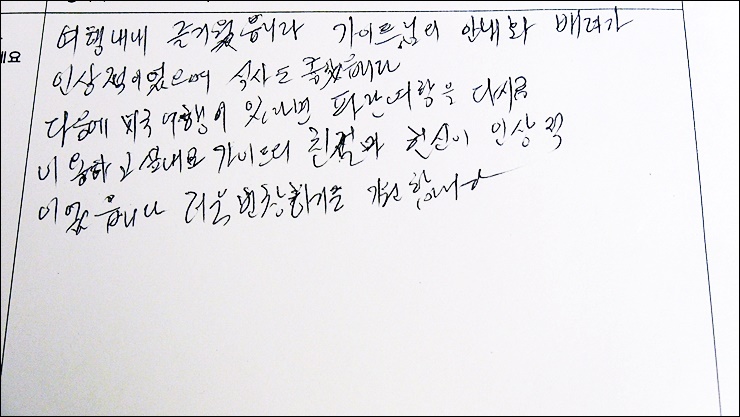 여행내내 즐거웠읍니다 가이드님의 안내와 배려가
세요
인상적이었으며 식사도 좋았읍니다
다음에 미국여행이 있다면 파란여행을 다시금
이용하고 싶네요 가이드의 친절과 헌신이 인상적
이었읍니다 더욱 번창하기를 기원합니다